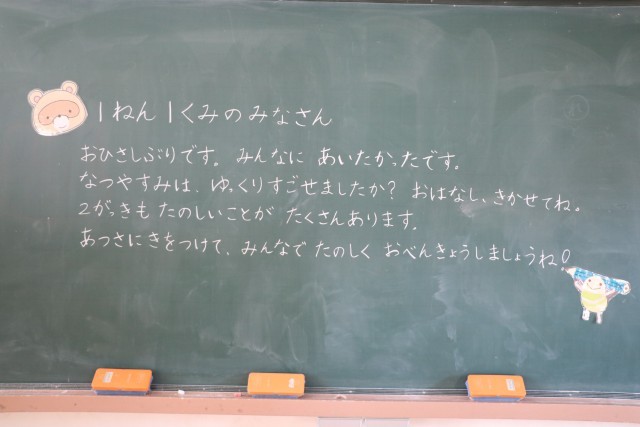 1ねん1くみのみなさん
おひさしぶりです。みんなに あいたかったです。
なつやすみは、ゆっくりすごせましたか? おはなし、きかせてね。
2がっきも たのしいことが たくさんあります。
あつさにきをつけて、みんなで たのしく おべんきょうしましょうね!